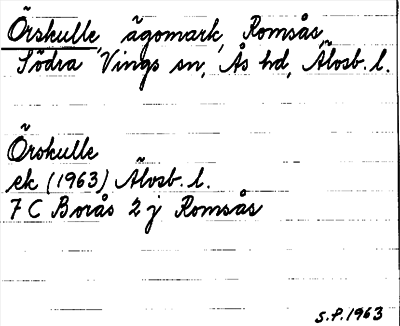 Örskulle, ägomark, Romsås,
Södra Vings sn, Ås hd, Älvsb. l.
Örskulle
ek (1963) Älvsb. l.
7 C Borås 2 j Romsås
S.P. 1963